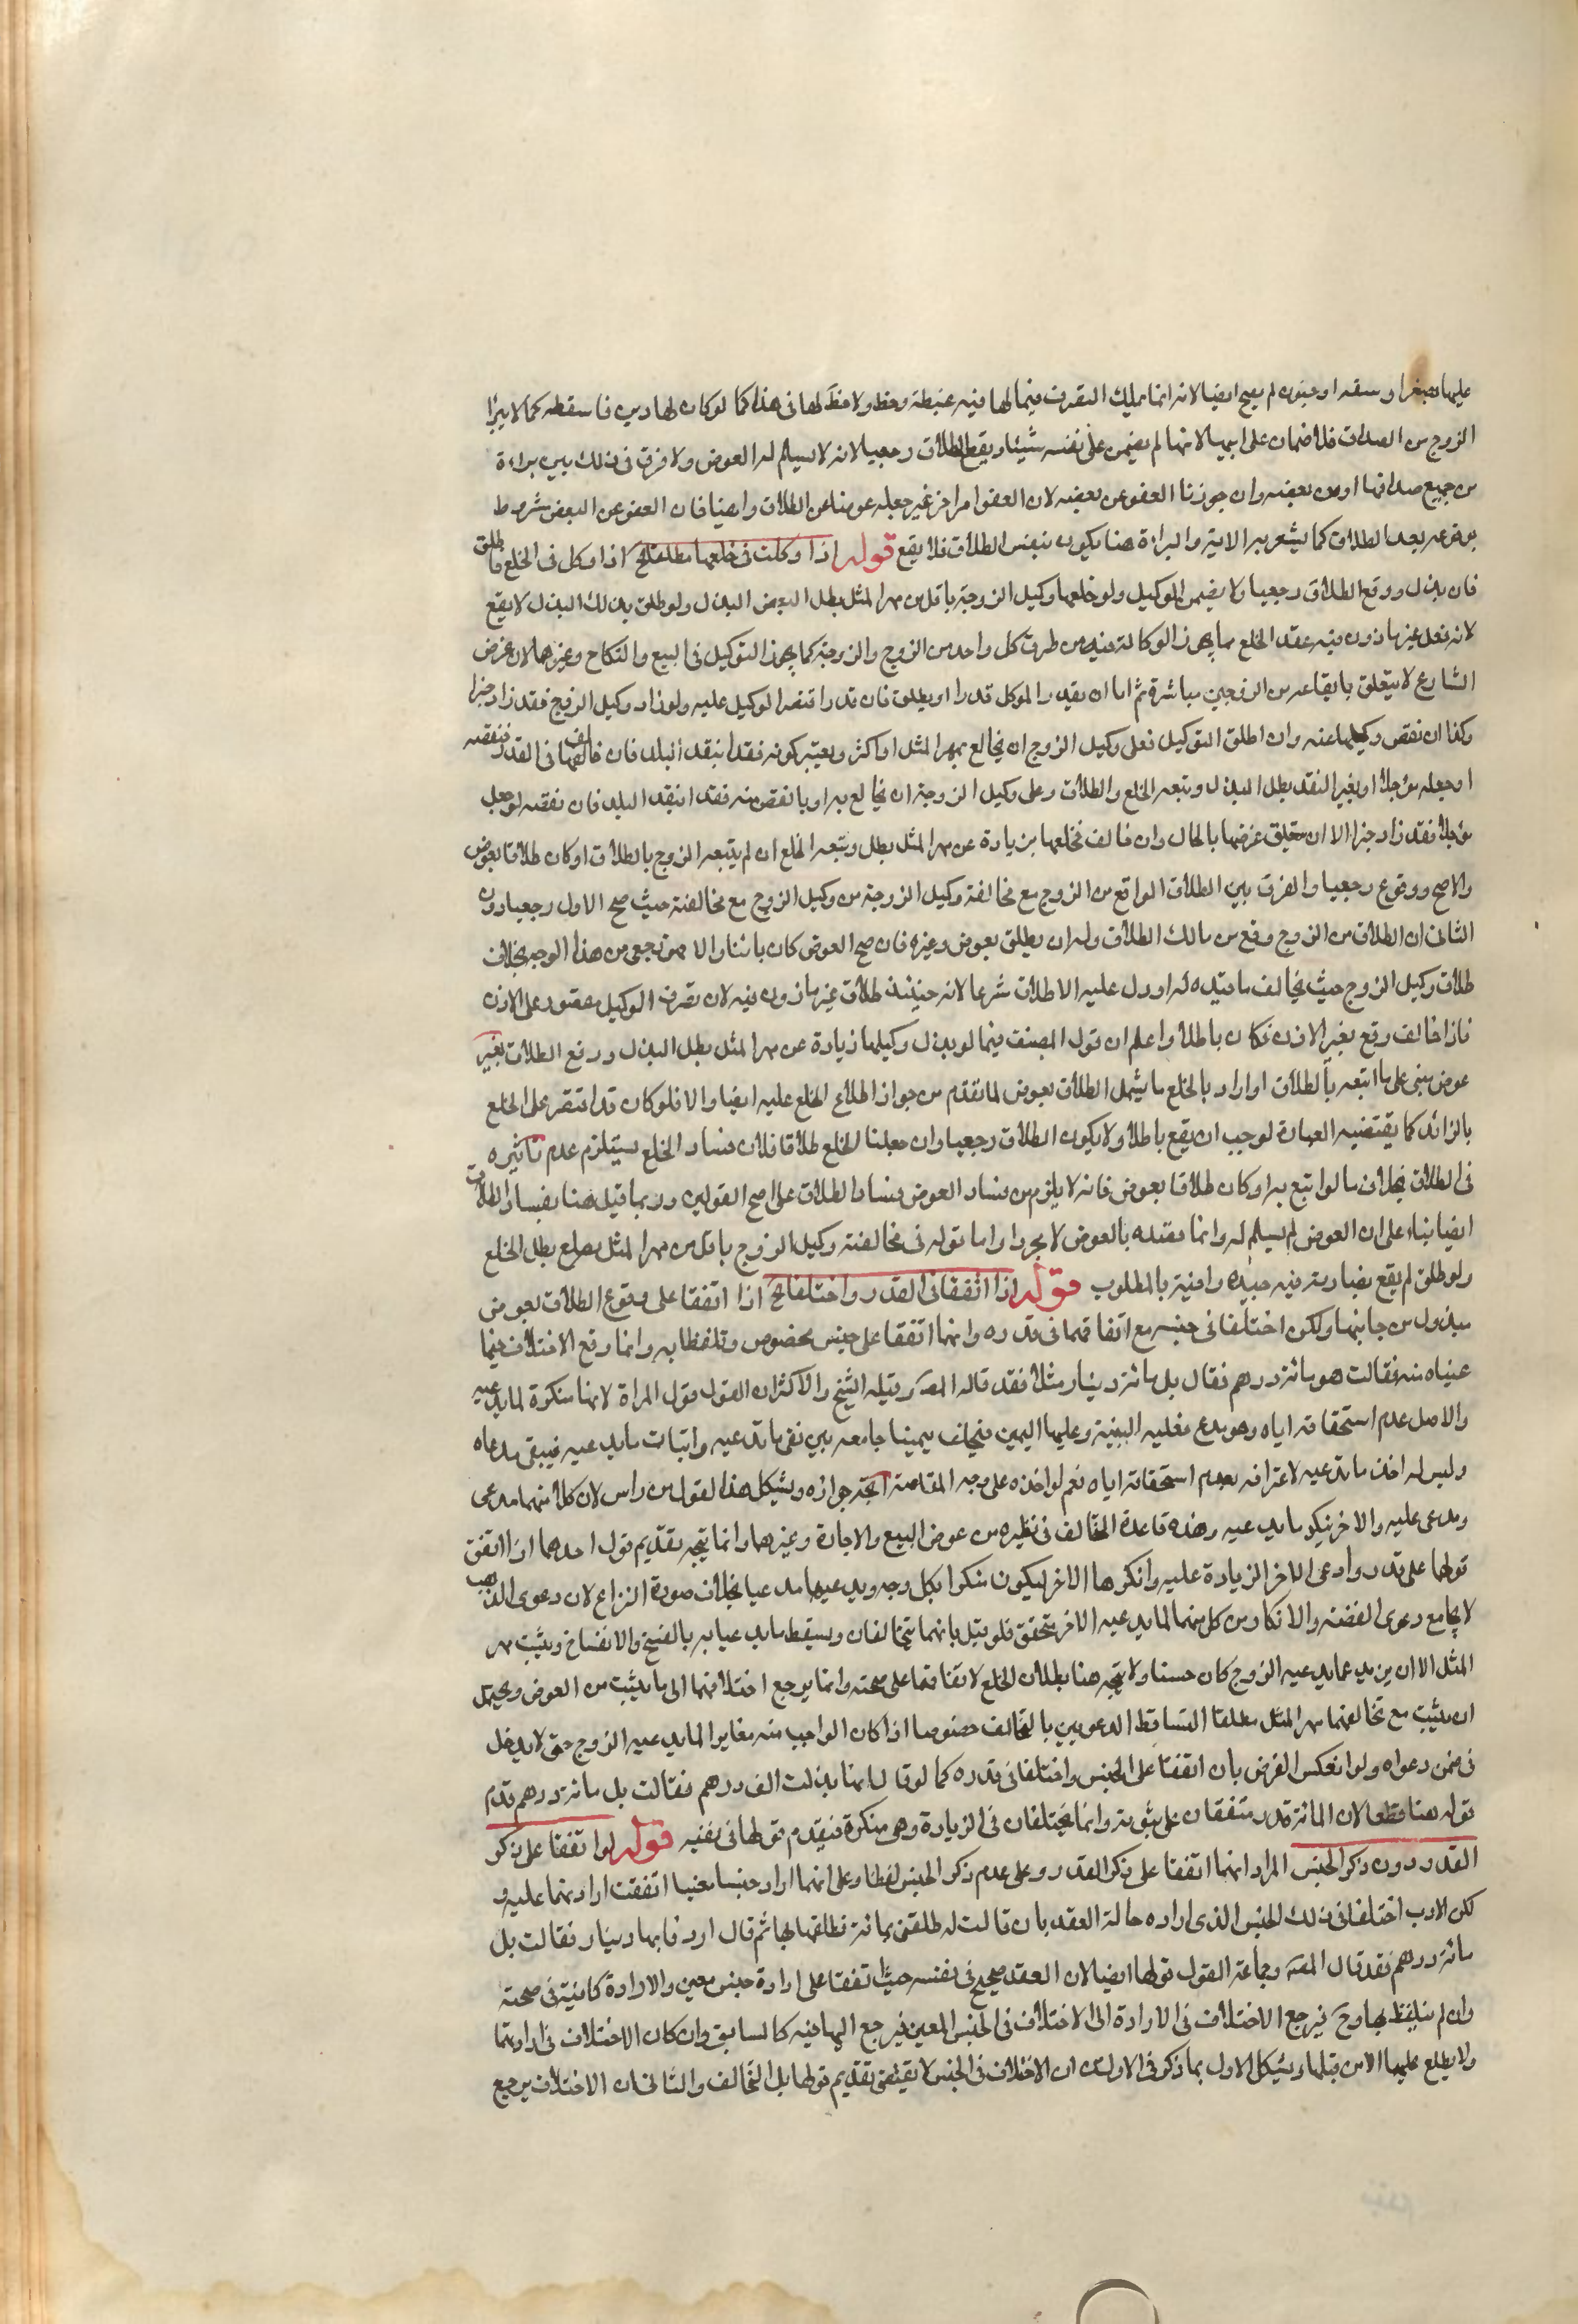 عليها بصغر او سفه او جنون لم يصح ايضا لانه انما يملك التصرف فيما لها فيه غبطة وحظ ولا حظ لها في هذا كما لو كان لها دين فاسقطه كما لا يبرا
الزوج من الصداق فلا ضمان على ابيها لانها لم يضمن على نفسه شيئا ويقع الطلاق رجعيا لانه لا يسلم له العوض ولا فرق في ذلك بين براءة
من جميع صداقها او من بعضه وان جوزنا العفو عن بعضه لان العفو امر اخر غير جعله عوضا عن الطلاق وايضا فان العفو عن البعض شرط
بوقوعه بعد الطلاق كما يشعر به الاية والبراءة هنا يكون بنفس الطلاق فلا يقع قوله اذا وكلت في خلعها مطلقا الخ اذا وكل في الخلع فاطلق
فان بذل ووقع الطلاق رجعيا ولا يضمن الوكيل ولو خلعها وكيل الزوجة باقل من مهر المثل بطل البذل ولو طلق بذلك البذل لا يقع
لانه فعل غير ماذون فيه عقد الخلع مما يجوز الوكالة فيه من طرف كل واحد من الزوج والزوجة كما يجوز التوكيل في البيع والنكاح وغيرهما لان غرض
الشارع لا يتعلق بايقاعه من الزوجين مباشرة ثم اما ان يقدر الموكل قدرا او يطلق فان قدر اقتصر الوكيل عليه ولو زاد وكيل الزوج فقد زاد خيرا
وكذا ان نقص وكيلها عنه وان اطلق التوكيل فعلى وكيل الزوج ان يخالع بمهر المثل او اكثر ويعتبر كونه نقدا بنقد البلد فان خالفهما في القدر فنقصه
او جعله مؤجلا او بغير النقد بطل البذل ويتبعه الخلع والطلاق وعلى وكيل الزوجة ان يخالع به او بانقص منه نقدا بنقد البلد فان نقصه او جعل
مؤجلا فقد زاد خيرا الا ان يتعلق غرضها بالحال وان خالف فخلعها بزيادة عن مهر المثل بطل ويتبعه الخلع ان لم يتبعه الزوج بالطلاق او كان طلاقا بعوض
والاصح ووقوع رجعيا والفرق بين الطلاق الواقع من الزوج مع مخالفة وكيل الزوجة من وكيل الزوج مع مخالفته حيث صح الاول رجعيا دون
الثاني ان الطلاق من الزوج وقع من مالك الطلاق وله ان يطلق بعوض وغيره فان صح العوض كان بائنا والا فهو رجعي من هذا الوجه بخلاف
طلاق وكيل الزوج حيث يخالف ما قيده له او دل عليه الاطلاق شرعا لانه حينئذ طلاق غير ماذون فيه لان تصرف الوكيل مقصور على الاذن
فاذا خالف وقع بغير الاذن فكان باطلا واعلم ان قول المصنف فيما لو بذل وكيلها زيادة عن مهر المثل بطل البذل ووقع الطلاق بغير
عوض مبني على ما اتبعه بالطلاق او اراد بالخلع ما يشمل الطلاق بعوض لما تقدم من جواز اطلاق الخلع عليه ايضا والا فلو كان قد اقتصر على الخلع
بالزائد كما يقتضيه العبارة لوجب ان يقع باطلا ولا يكون الطلاق رجعيا وان جعلنا الخلع طلاقا فلان فساد الخلع يستلزم عدم تاثيره
في الطلاق بخلاف ما لو اتبع به او كان طلاقا بعوض فانه لا يلزم من فساد العوض فساد الطلاق على اصح القولين وربما قيل هنا بفساد الطلاق
ايضا بناء على ان العوض لم يسلم له وانما يقصده بالعوض لا مجردا واما قوله في مخالفته وكيل الزوج باقل من مهر المثل يطل الخلع
ولو طلق لم يقع فعبارته فيه جيدة وافية بالمطلوب قوله اذا اتفقا في القدر واختلفا الخ اذا اتفقا على وقوع الطلاق بعوض
مبذول من جانبها ولكن اختلفا في جنسه مع اتفاقهما في قدره وانهما اتفقا على جنس مخصوص وتلفظا به وانما وقع الاختلاف فيما
عيناه منه فقالت هو مائة درهم فقال بل مائة دينار مثلا فقد قال المصـ وقبله الشيخ والاكثر ان القول قول المراة لانها منكرة لما يدعيه
والاصل عدم استحقاقه اياه وهو مدع فعليه البينة وعليها اليمين فيحلف يمينا جامعة بين نفي ما يدعيه واثبات ما يدعيه فيبقى مدعاه
وليس له اخذ ما يدعيه لاعترافه بعدم استحقاقه اياه نعم لو اخذه على وجه المقاصة اتجه جوازه ويشكل هذا القول من راس لان كلا منهما مدعي
ومدعى عليه والاخر ينكر ما يدعيه وهذه قاعدة التحالف في نظيره من عوض البيع والاجارة وغيرهما وانما يتجه تقديم قول احدهما اذا اتفق
قولهما على قدر وادعى الاخر الزيادة عليه وانكرها الاخر ليكون منكرا بكل وجه ويدعيها مدعيا بخلاف صورة النزاع لان دعوى الذهب
لا يجامع دعوى الفضة والانكار من كل منهما لما يدعيه الاخر متحقق فلو قيل بانهما يتحالفان ويسقط ما يدعيانه بالفسخ والانفساخ ويثبت مهر
المثل الا ان يزيد عما يدعيه الزوج كان حسنا ولا يتجه هنا بطلان الخلع لاتفاقهما على صحته وانما يرجع اختلافهما الى ما يثبت من العوض ويحتمل
ان يثبت مع تحالفهما مهر المثل مطلقا لتساقط الدعويين بالتحالف خصوصا اذا كان الواجب منه مغايرا لما يدعيه الزوج حتى لا يدخل
في ضمن دعواه ولو انعكس الفرض بان اتفقا على الجنس واختلفا في قدره كما لو قال انها بذلت الف درهم فقالت بل مائة درهم قدم
قوله هنا قطعا لان المائة قدر متفقان على ثبوته وانما يختلفان في الزيادة وهي منكرة فيقدم قولها في نفيه قوله لو اتفقا على ذكر
القدر دون ذكر الجنس المراد انهما اتفقا على ذكر القدر وعلى عدم ذكر الجنس لفظا وعلى انهما ارادا جنسا معينا اتفقت ارادتهما عليه و
لكن الارب اختلفا في ذلك الجنس الذي اراده حالة العقد بان قالت له طلقني بمائة فطلقها بها ثم قال اردنا بها دينار فقالت بل
مائة درهم فقد قال المصـ وجماعة القول قولها ايضا لان العقد صحيح في نفسه حيث اتفقا على ارادة جنس معين والارادة كافية في صحته
وان لم يتلفظ بها وح فيرجع الاختلاف في الارادة الى الاختلاف في الجنس المعين فيرجع اليها فيه كالسابق وان كان الاختلاف في ارادتهما
ولا يطلع عليها الا من قبلها ويشكل الاول بما ذكر في الاول من ان الاختلاف في الجنس لا يقتضي تقديم قولها بل التحالف والثاني ان الاختلاف يرجع